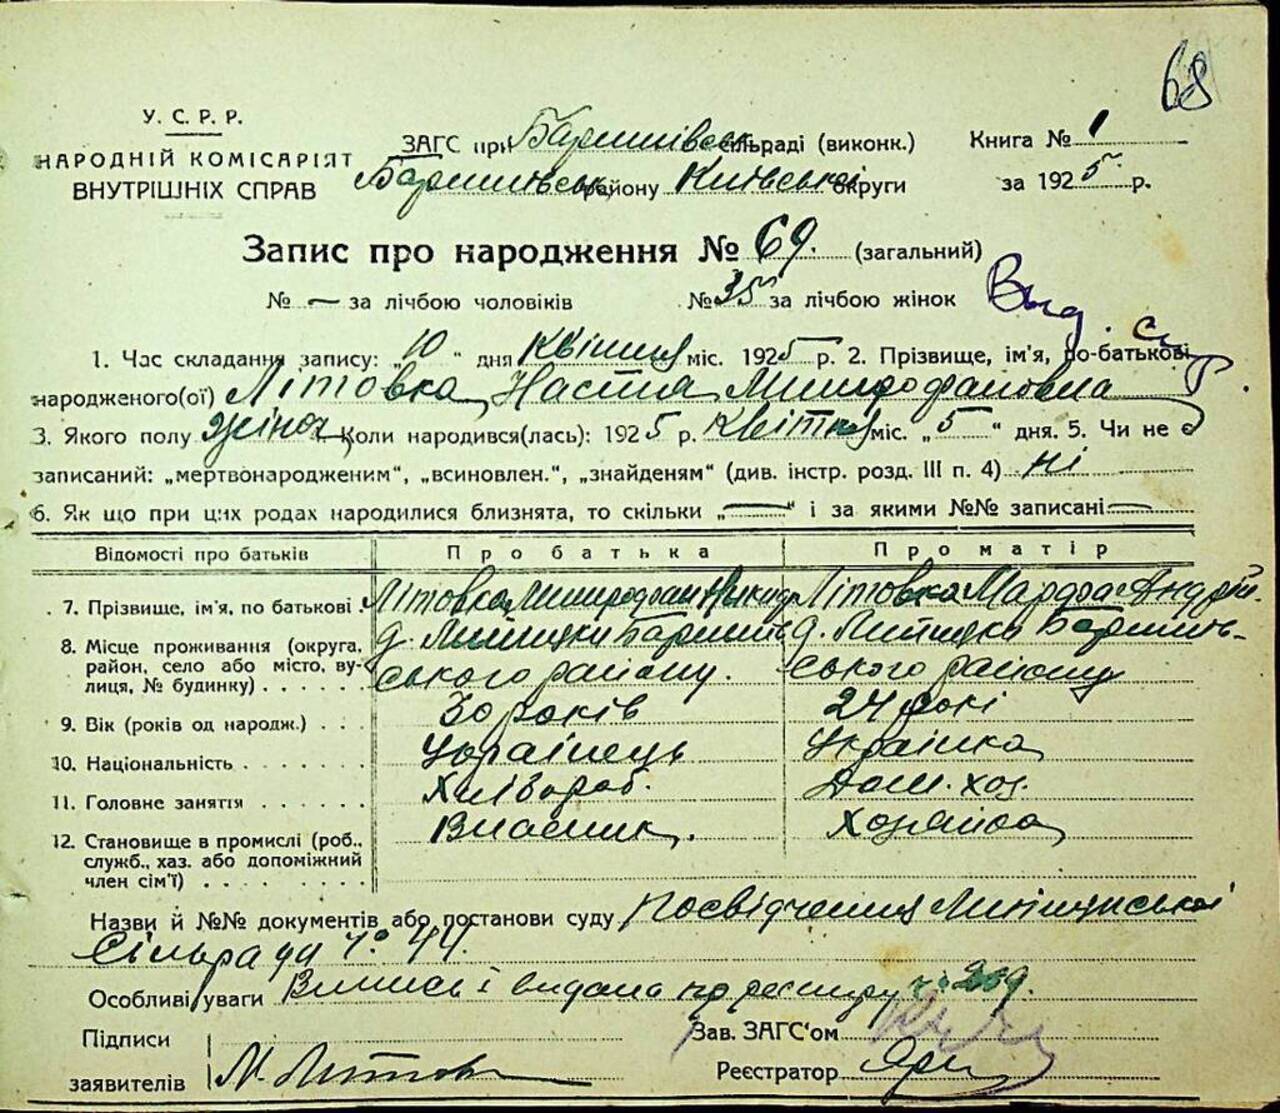 68
У.С.Р.Р.
НАРОДНІЙ КОМІСАРІЯТ
ВНУТРІШНІХ СПРАВ
ЗАГС при Баришівськ. сільраді (виконк.)
Баришівськ. району Київської округи
Книга № 1
за 1925 р.
Запис про народження № 69. (загальний)
№ — за лічбою чоловіків № 35 за лічбою жінок
Выд.
1. Час складання запису: „10“ дня Квітня міс. 1925 р. 2. Прізвище, ім'я, по-батькові
народженого(ої) Літовка Настя Митрофановна
3. Якого полу жіноч. Коли народився(лась): 1925 р. Квітня міс. „5“ дня. 5. Чи не є
записаний: „мертвонародженим“, „всиновлен.“, „знайденям“ (див. інстр. розд. III п. 4) ні
6. Як що при цих родах народилися близнята, то скільки „—“ і за якими №№ записані —
Відомості про батьків Про батька Про матір
7. Прізвище, ім'я, по батькові Літовка Митрофан Никид. Літовка Марфа Андрій.
8. Місце проживання (округа, район, село або місто, вулиця, № будинку) д. Лип'иці Баришів-
ського району. ського району
9. Вік (років од народж.) 30 років 24 рокі
10. Національність Українець Українка
11. Головне заняття Хлібороб. Дом. хоз.
12. Становище в промислі (роб., Власник. Хозяйка
служб., хаз. або допоміжний
член сім'ї)
Назви й №№ документів або постанови суду Посвідчення
Сільради ч. 44.
Особливі уваги Випись і видана по реєстру ч. 269.
Підписи
заявителів М. Литов
Зав. ЗАГС'ом
Реєстратор